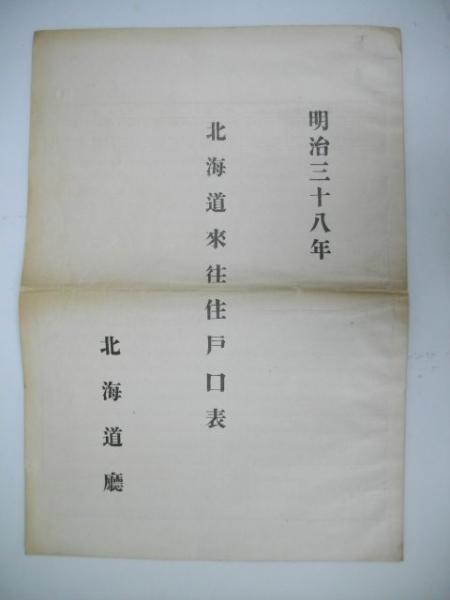 明治三十八年
北海道來往住戸口表
北海道廳